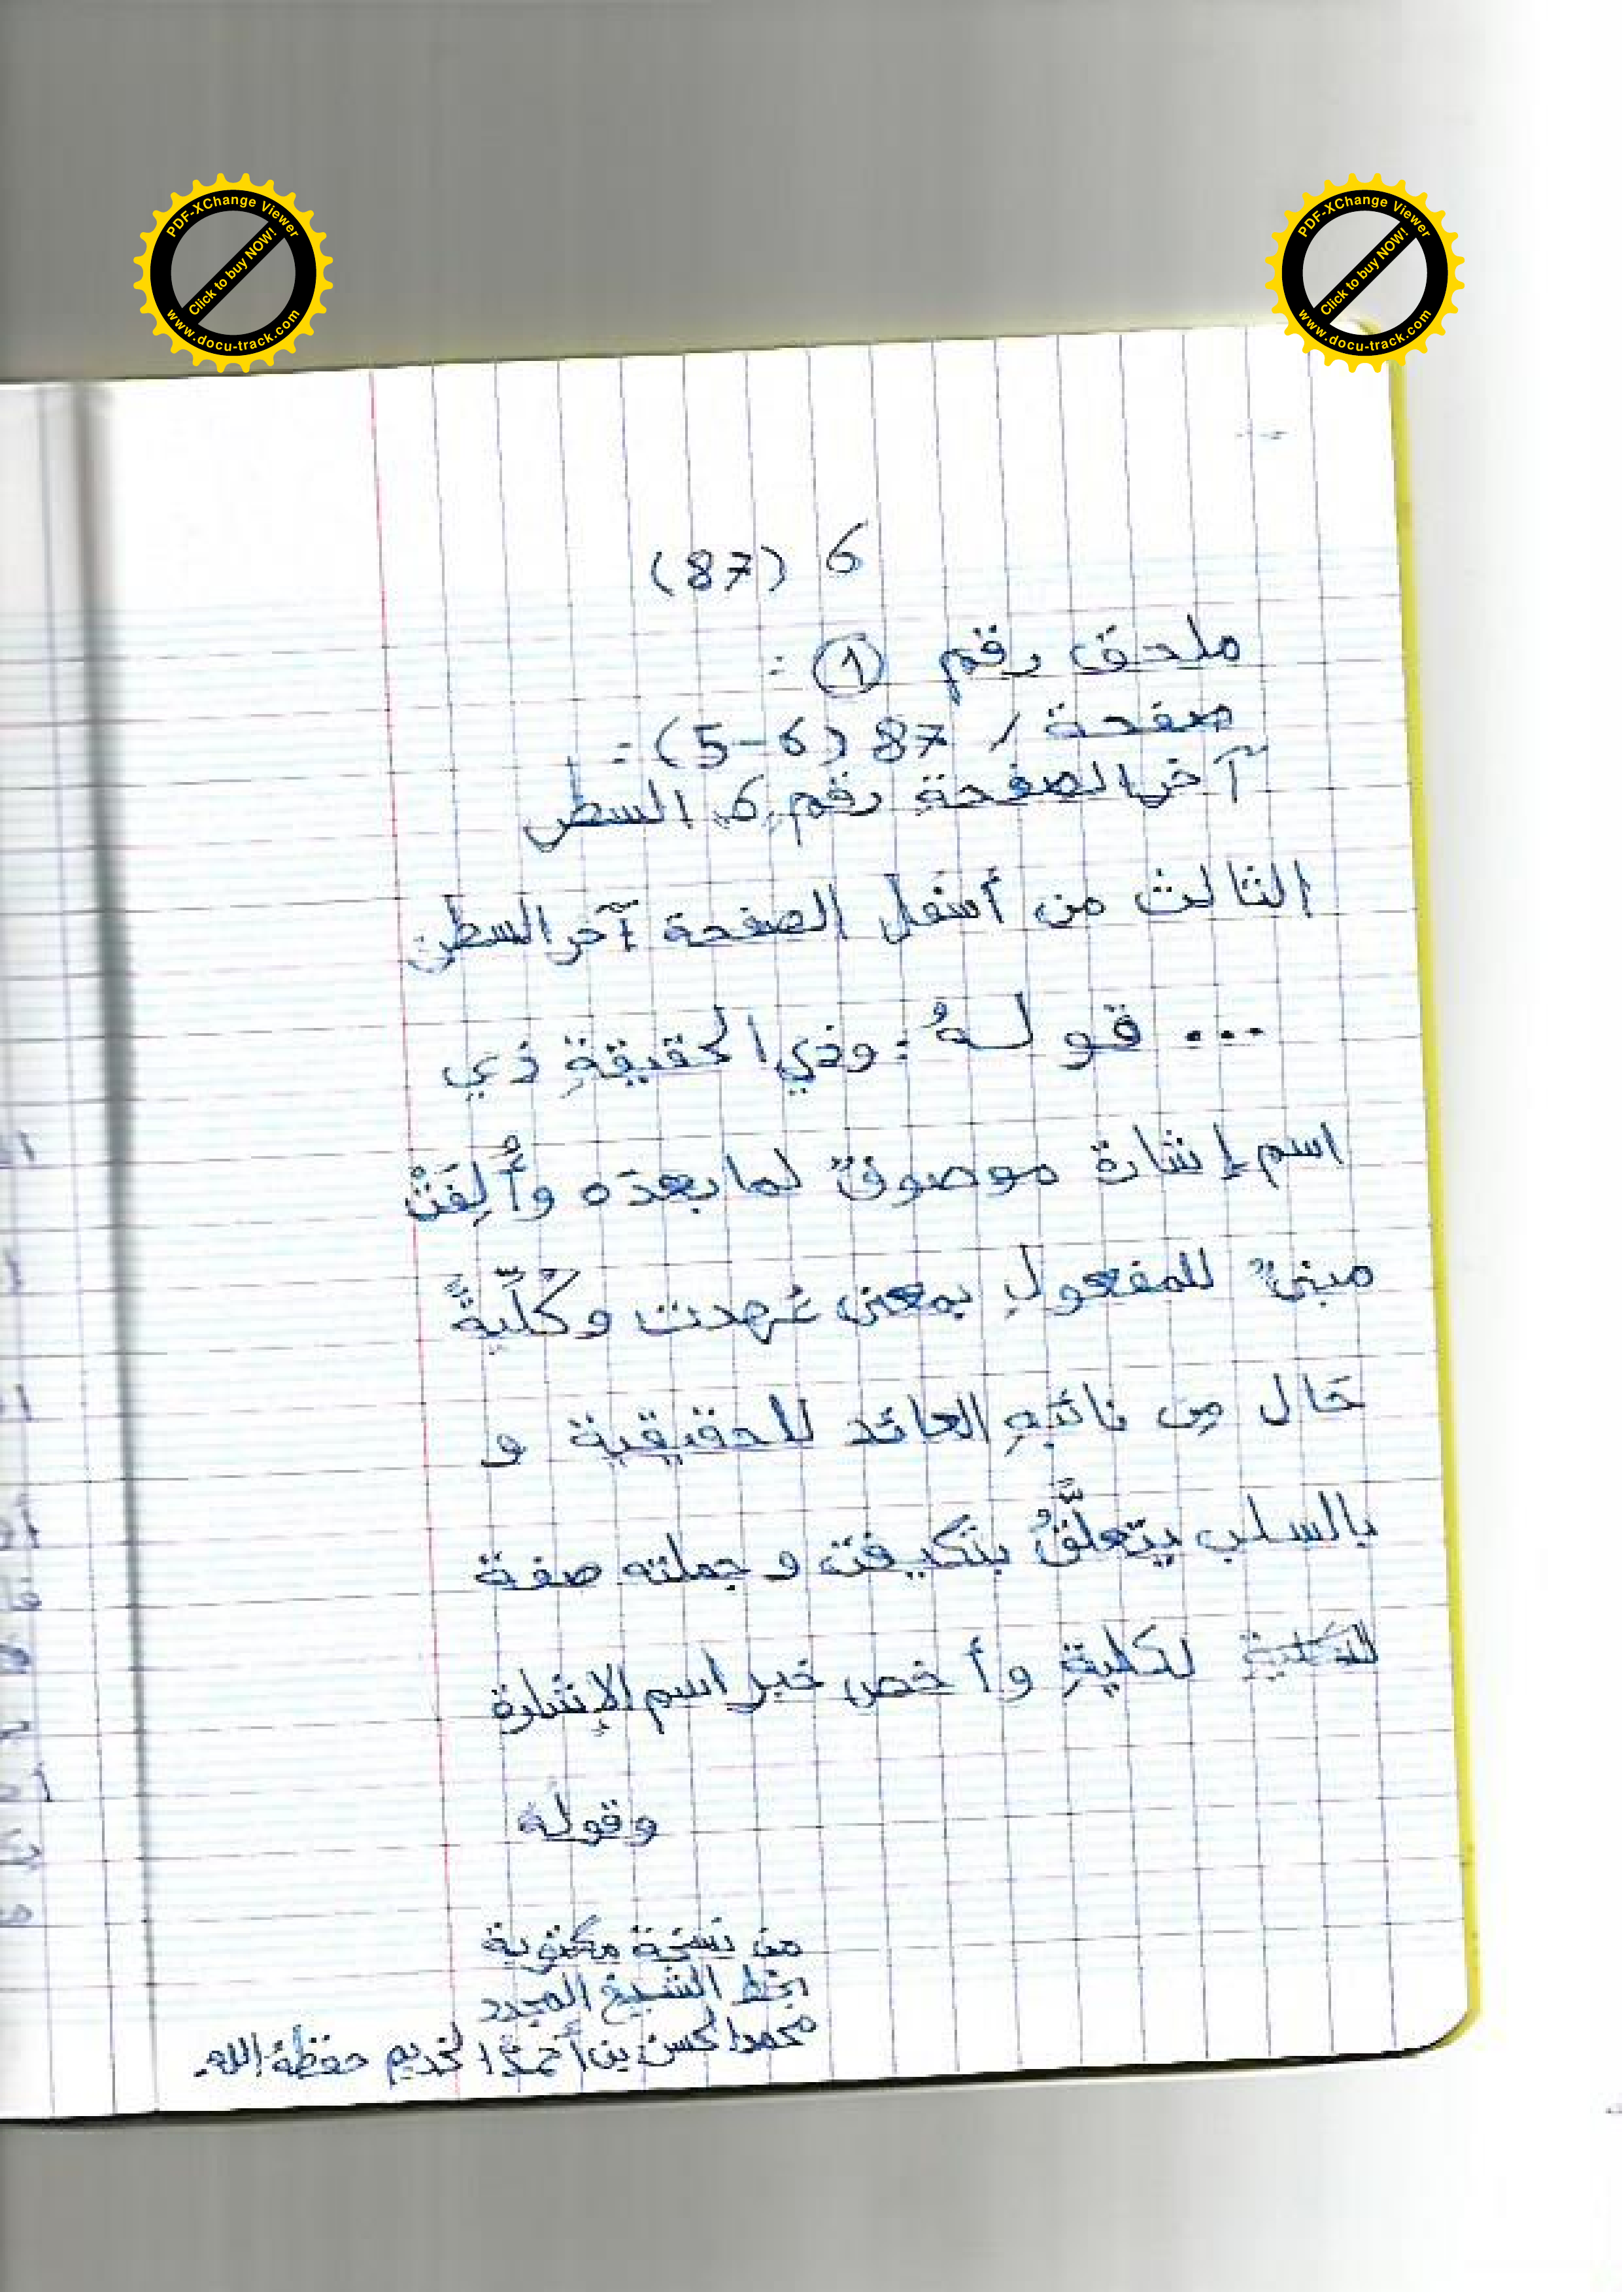 PDF-XChange Viewer
Click to buy NOW!
www.docu-track.com
PDF-XChange Viewer
Click to buy NOW!
www.docu-track.com
6 (87)
ملحق رقم 1 :
صفحة / 87 (5-6) :
آخر الصفحة رقم 6، السطر
الثالث من أسفل الصفحة آخر السطر
... قولهُ : وذي الحقيقةِ ذي
اسم إشارة موصوفٌ لما بعدَه وأُلِفَتْ
مبنيٌّ للمفعولِ بمعنى عُهدت وكُلِّيةً
حَال من نائبِهِ العائد للحقيقية و
بالسلب يتعلَّقُ بتكيفت وجملته صفة
للكلية لكليةٍ وأخص خبر اسم الإشارة
وقوله
من نسخة مكتوبة
بخط الشيخ المجدد
محمد الحسن بن أحمدُ الخديم حفظه الله.